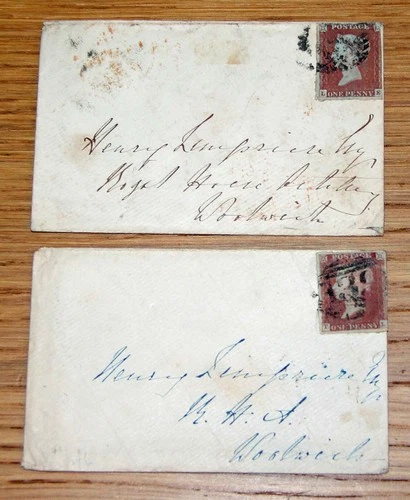 POSTAGE
ONE PENNY
Henry Lempriere Esq
Royal Horse Artillery
Woolwich
POSTAGE
ONE PENNY
Henry Lempriere Esq
R. H. A.
Woolwich